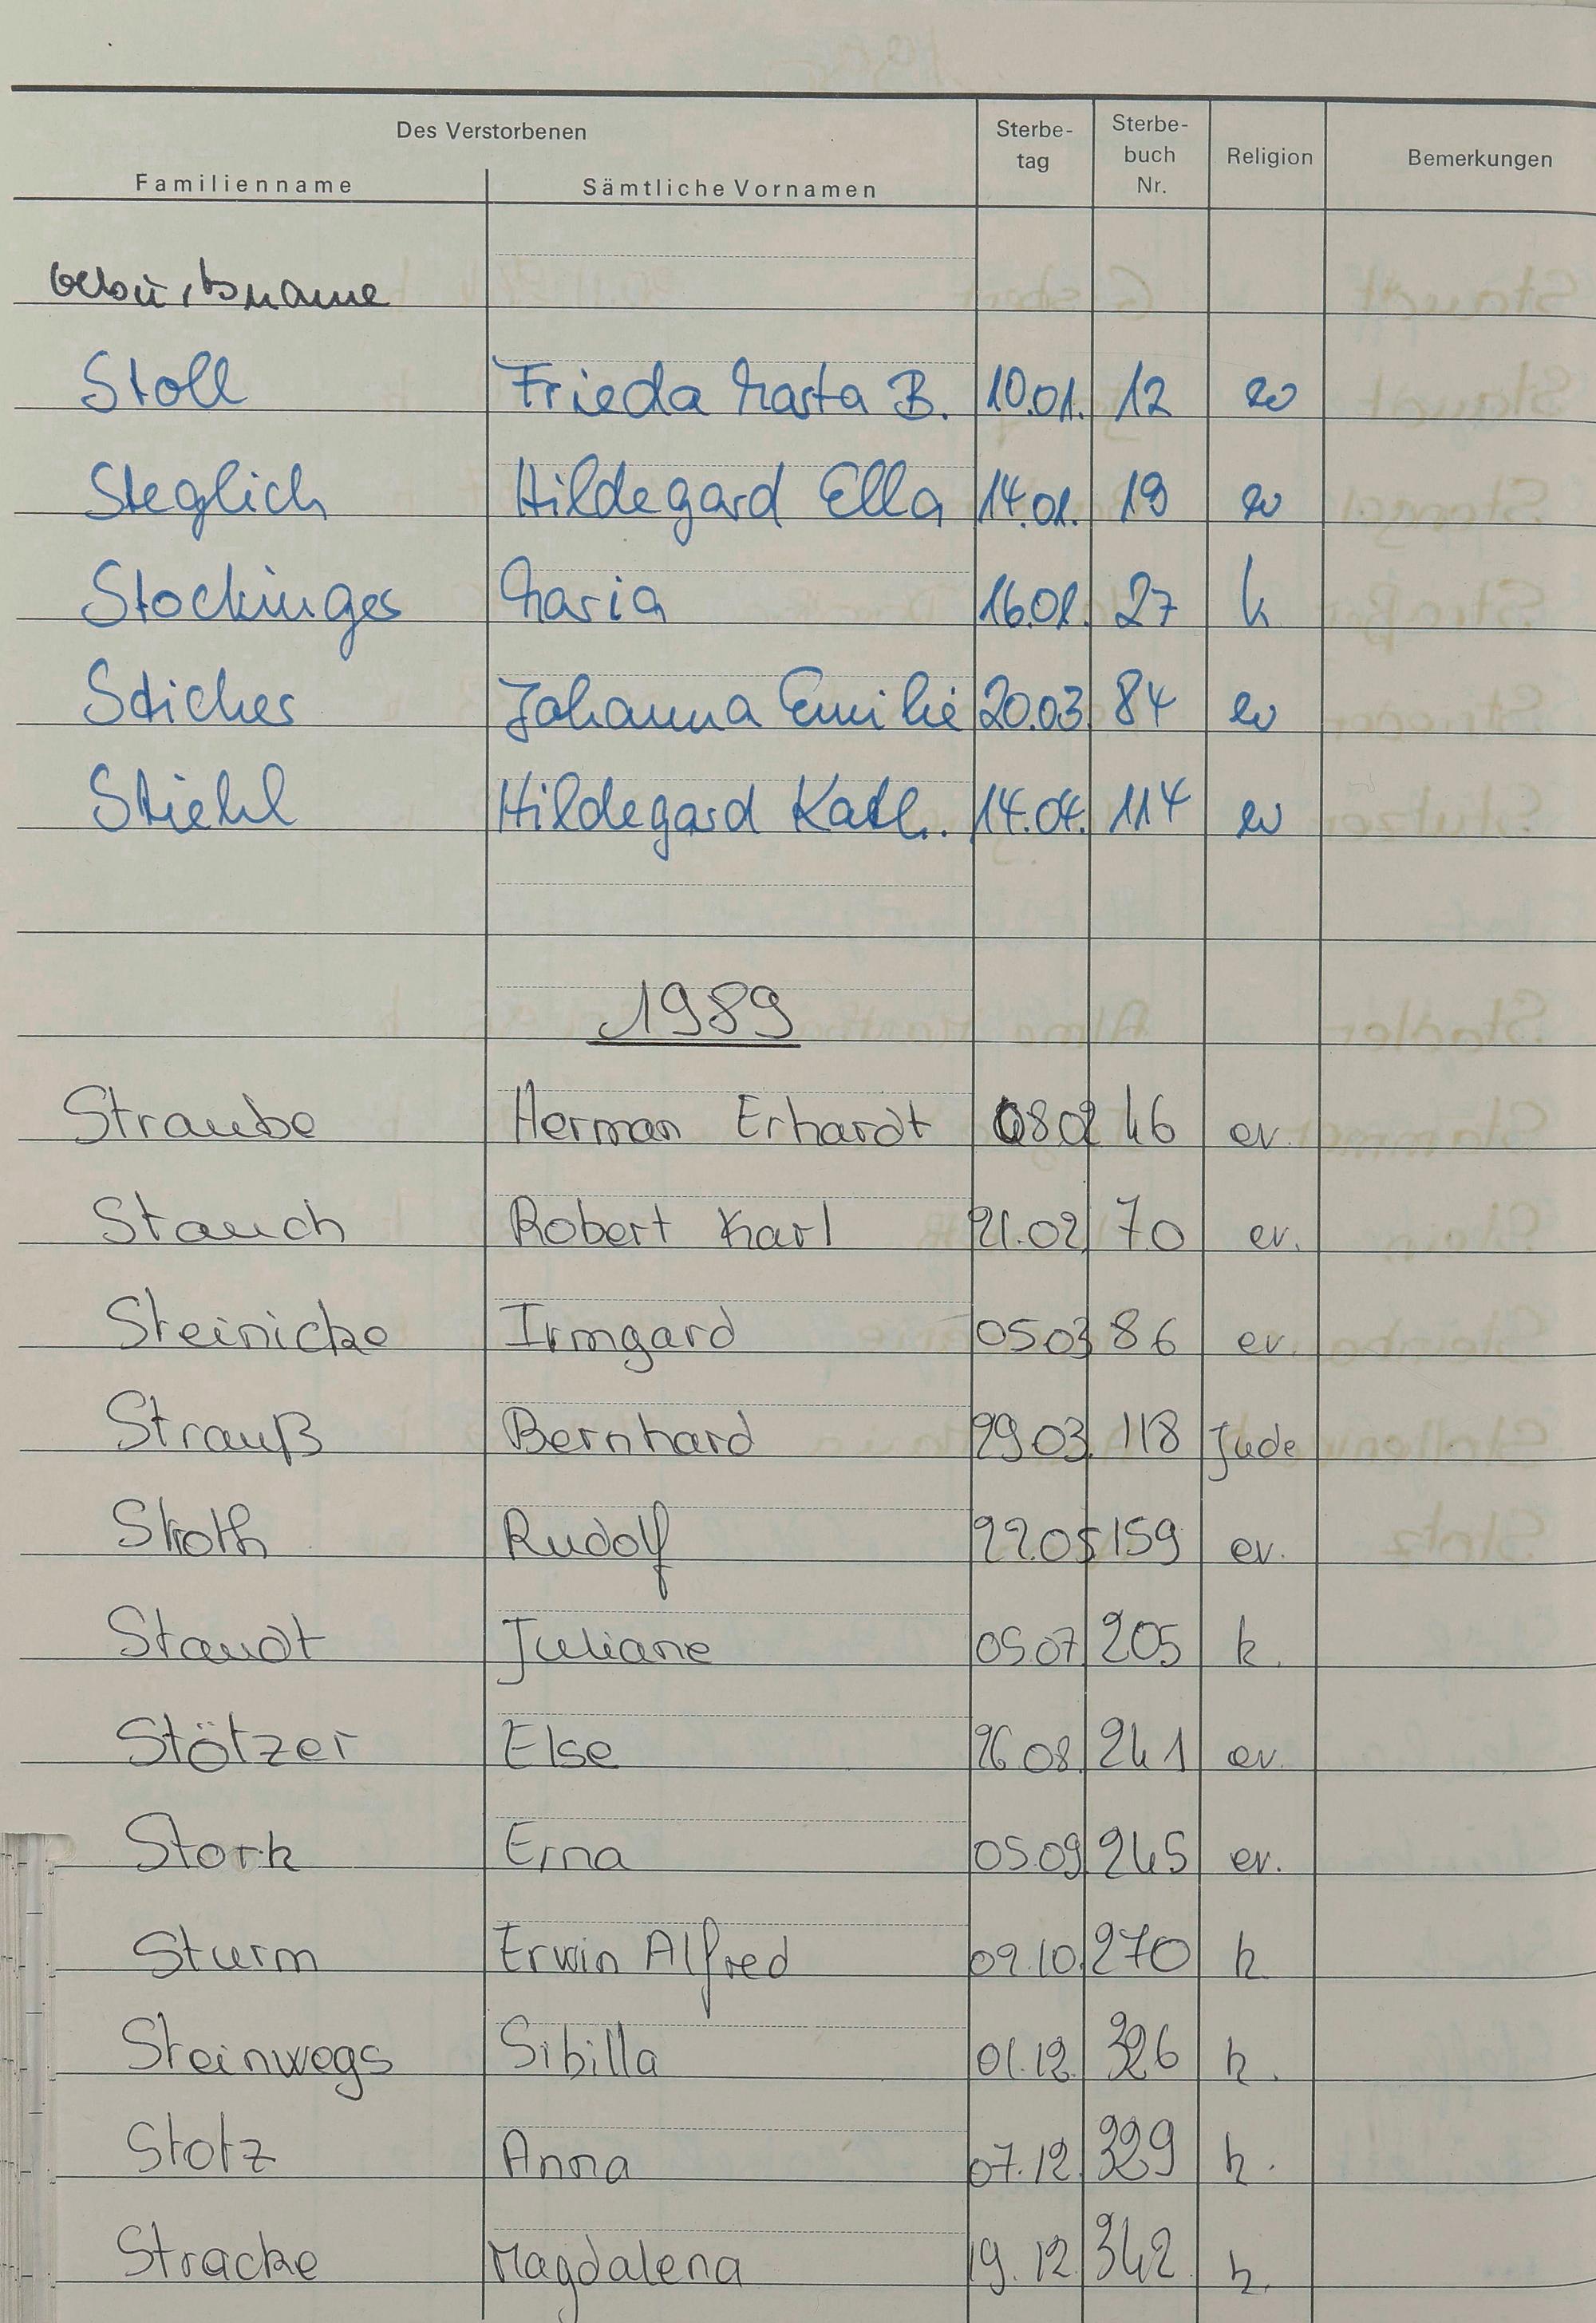 Des Verstorbenen
Familienname Sämtliche Vornamen Sterbe-tag Sterbe-buch Nr. Religion Bemerkungen
Geburtsname
Stoll Frieda Marta B. 10.01. 12 ev
Steglich Hildegard Ella 14.01. 19 ev
Stockinger Maria 16.01. 27 k
Sticher Johanna Emilie 20.03 84 ev
Stiehl Hildegard Kath. 14.04. 114 ev
1989
Straube Herman Erhardt 08 02 46 ev.
Stauch Robert Karl 21.02 70 ev.
Steinicke Irmgard 05 03 86 ev.
Strauß Bernhard 29 03. 118 Jude
Stroth Rudolf 22.05 159 ev.
Staudt Juliane 05.07 205 k.
Stötzer Else 26 08. 241 ev.
Stork Erna 05 09 245 ev.
Sturm Erwin Alfred 09.10. 270 k
Steinwegs Sibilla 01.12 326 k.
Stotz Anna 07.12 329 k.
Stracke Magdalena 19.12 342 k.